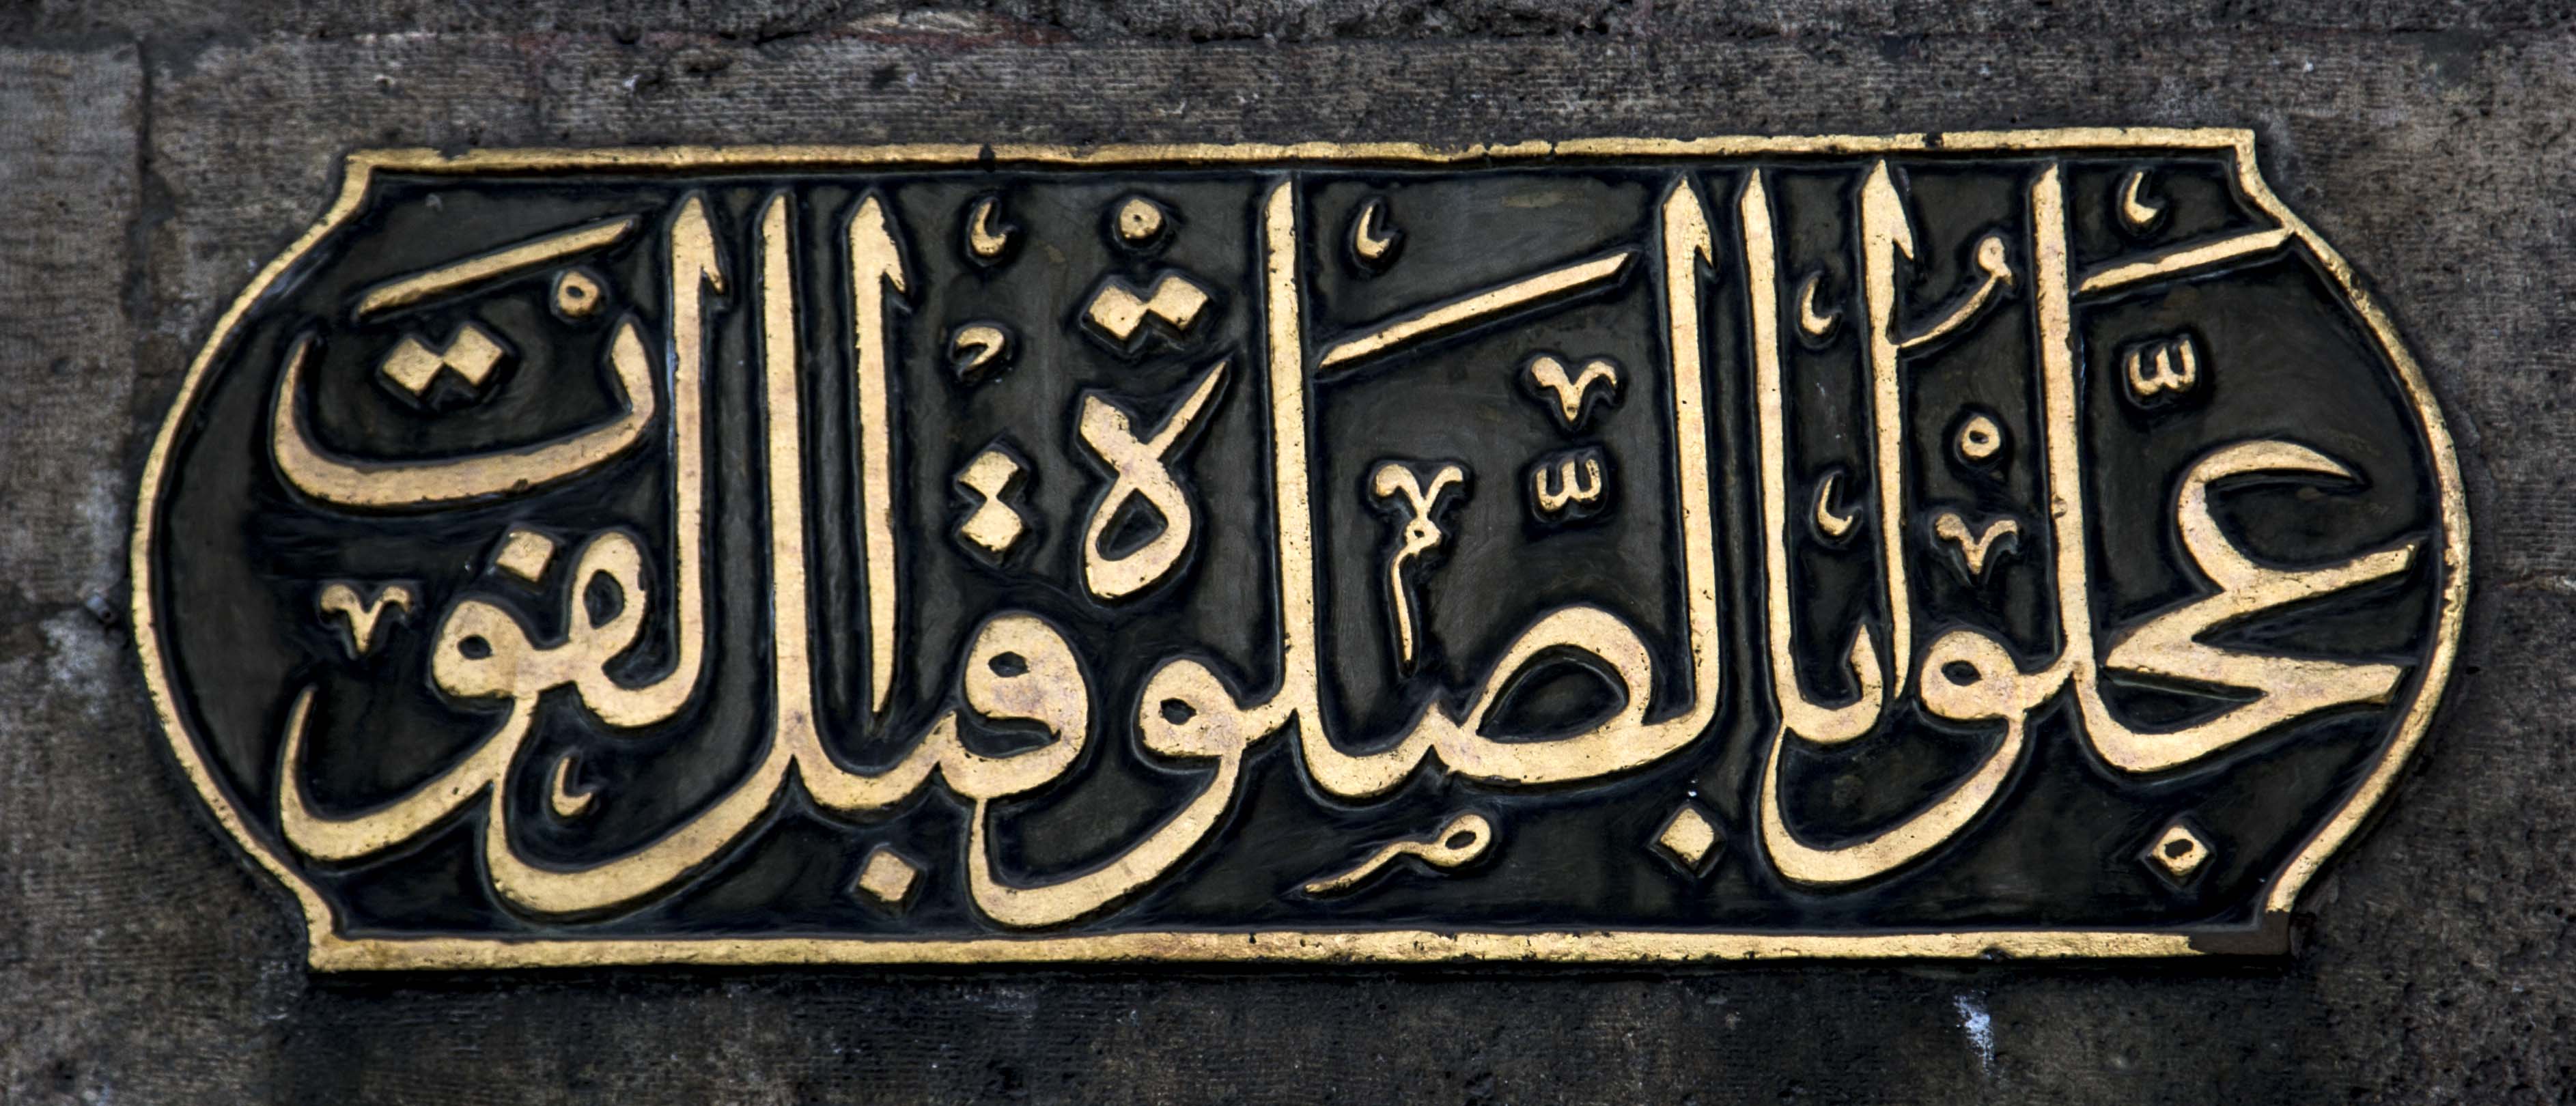 عَجِّلُوا بِالصَّلٰوةِ قَبْلَ الْفَوْت